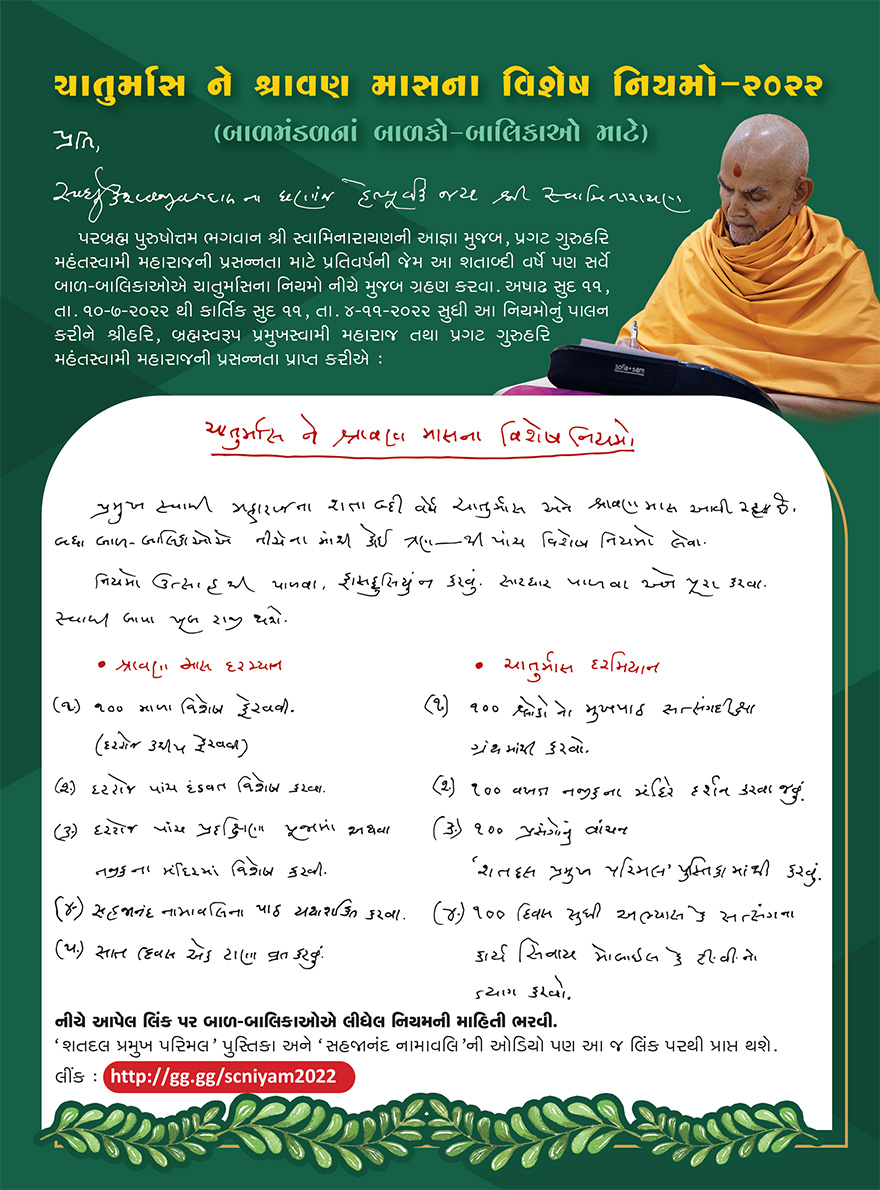 ચાતુર્માસ ને શ્રાવણ માસના વિશેષ નિયમો-૨૦૨૨
(બાળમંડળનાં બાળકો-બાલિકાઓ માટે)
પ્રતિ,
ના ઘણાંજ હેતપૂર્વક જય શ્રી સ્વામિનારાયણ
પરબ્રહ્મ પુરુષોત્તમ ભગવાન શ્રી સ્વામિનારાયણની આજ્ઞા મુજબ, પ્રગટ ગુરુહરિ
મહંતસ્વામી મહારાજની પ્રસન્નતા માટે પ્રતિવર્ષની જેમ આ શતાબ્દી વર્ષે પણ સર્વે
બાળ-બાલિકાઓએ ચાતુર્માસના નિયમો નીચે મુજબ ગ્રહણ કરવા. અષાઢ સુદ ૧૧,
તા. ૧૦-૭-૨૦૨૨ થી કાર્તિક સુદ ૧૧, તા. ૪-૧૧-૨૦૨૨ સુધી આ નિયમોનું પાલન
કરીને શ્રીહરિ, બ્રહ્મસ્વરૂપ પ્રમુખસ્વામી મહારાજ તથા પ્રગટ ગુરુહરિ
મહંતસ્વામી મહારાજની પ્રસન્નતા પ્રાપ્ત કરીએ :
sofia+sam
ચાતુર્માસ ને શ્રાવણ માસના વિશેષ નિયમો.
પ્રમુખ સ્વામી મહારાજના શતાબ્દી વર્ષે ચાતુર્માસ અને શ્રાવણ માસ આવી રહ્યા છે.
બધા બાળ-બાલિકાઓએ નીચેના માંથી કોઈ ત્રણ—થી પાંચ વિશેષ નિયમો લેવા.
નિયમો ઉત્સાહથી પાળવા, ફોસફુસિયું ન કરવું. સારધાર પાળવા અને પૂરા કરવા.
સ્વામી બાપા ખૂબ રાજી થશે.
• શ્રાવણ માસ દરમ્યાન
(૧) ૧૦૦ માળા વિશેષ ફેરવવી.
(દરરોજ ફેરવવી)
(૨.) દરરોજ પાંચ દંડવત વિશેષ કરવા.
(૩.) દરરોજ પાંચ પ્રદક્ષિણા પૂજામાં અથવા
નજીકના મંદિરમાં વિશેષ કરવી.
(૪.) સહજાનંદ નામાવલિના પાઠ યથાશક્તિ કરવા.
(૫.) સાત દિવસ એક ટાણા વ્રત કરવું.
• ચાતુર્માસ દરમિયાન
(૧.) ૧૦૦ શ્લોકોનો મુખપાઠ સત્સંગદીક્ષા
ગ્રંથમાંથી કરવો.
(૨.) ૧૦૦ વખત નજીકના મંદિરે દર્શન કરવા જવું.
(૩.) ૧૦૦ પ્રસંગોનું વાંચન
‘શતદલ પ્રમુખ પરિમલ’ પુસ્તિકામાંથી કરવું.
(૪.) ૧૦૦ દિવસ સુધી અભ્યાસ કે સત્સંગના
કાર્ય સિવાય મોબાઈલ કે ટી.વી.નો
ત્યાગ કરવો.
નીચે આપેલ લિંક પર બાળ-બાલિકાઓએ લીધેલ નિયમની માહિતી ભરવી.
‘શતદલ પ્રમુખ પરિમલ’ પુસ્તિકા અને ‘સહજાનંદ નામાવલિ’ની ઓડિયો પણ આ જ લિંક પરથી પ્રાપ્ત થશે.
લીંક : http://gg.gg/scniyam2022